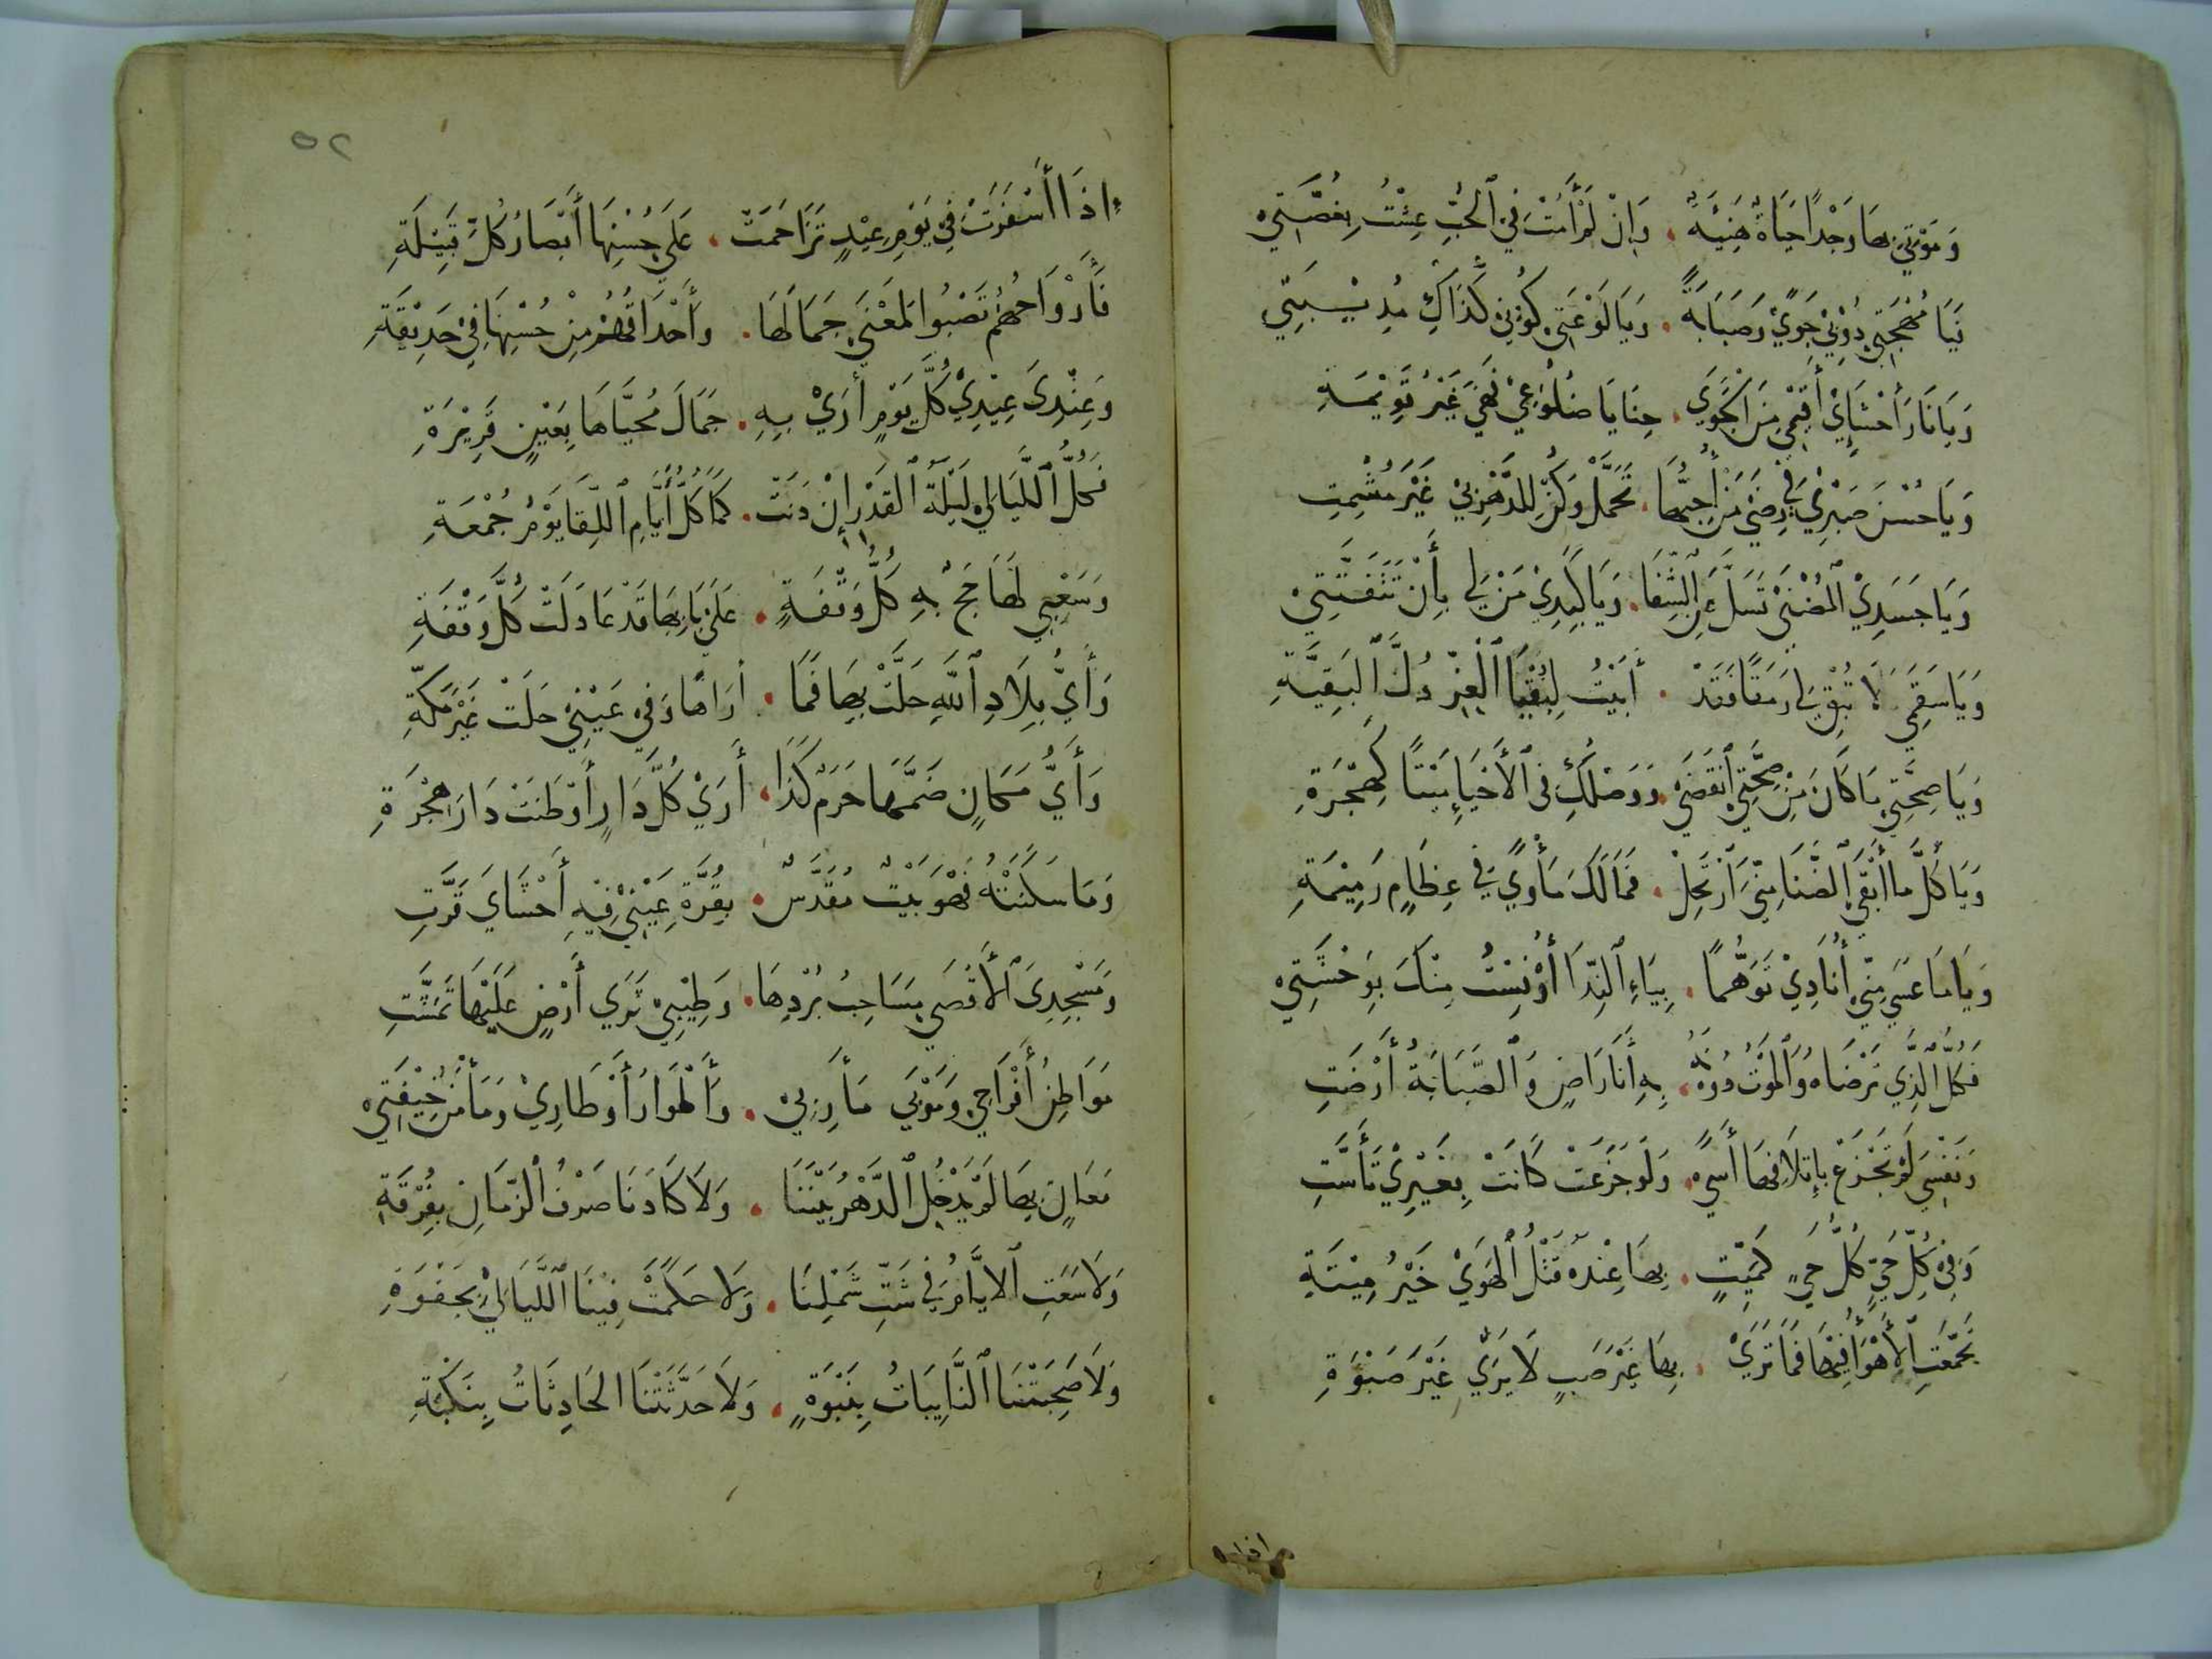 وَمَوْتِي بِهَا وَجْدًا حَيَاةٌ هَنِيَّةٌ . وَإِنْ لَمْ أَمُتْ فِي ٱلْحُبِّ عِشْتُ بِغُصَّتِي
فَيَا مُهْجَتِي ذُوْبِيْ جَوًي وَصَبَابَةً . وَيَا لَوْعَتِي كُوْنِيْ كَذَاكِ مُذِيْبَتِي
وَيَا نَارَ أَحْشَائِيْ أَقِيْمِيْ مِنَ الْجَوَي . حَنَايَا ضُلُوْعِيْ فَهْيَ غَيْرُ قَوِيْمَةِ
وَيَا حُسْنَ صَبْرِيْ فِي رِضَيْ مَنْ أُحِبُّهَا . تَجَمَّلْ وَكُنْ لِلدَّهْرِ بِيْ غَيْرَ مُشْمِتِ
وَيَا جَسَدِيْ الْمُضْنَيْ تَسَلَّ عَنِ ٱلشِّفَا . وَيَا كَبِدِيْ مَنْ لِي بِأَنْ تَتَفَتَّتِيْ
وَيَا سَقَمِي لَا تُبْقِ لِي رَمَقًا فَقَدْ . أَبَيْتُ لِبُقْيَا ٱلْعِزِّ ذُلَّ ٱلْبَقِيَّةِ
وَيَا صِحَّتِي مَا كَانَ مِنْ صُحْبَتِي ٱنْقَضَيْ . وَوَصْلُكِ فِى ٱلْأَحْيَاءِ مَيْتًا كَهِجْرَةِ
وَيَا كُلَّ مَا أَبْقَي ٱلضَّنَا مِنِّيَ ٱرْتَحِلْ . فَمَا لَكَ مَأْوًي فِي عِظَامٍ رَمِيْمَةِ
وَيَا مَا عَسَي مِنِّي أُنَادِيْ تَوَهُّمًا . بِيَاءِ ٱلنِّدَا أُوْنِسْتُ مِنْكَ بِوَحْشَتِيْ
فَكُلُّ ٱلَّذِي تَرْضَاهُ وَٱلْمَوْتُ دُوْنَهُ . بِهِ أَنَا رَاضٍ وَٱلصَّبَابَةُ أَرْضَتِ
وَنَفْسِيَ لَمْ تَجْزَعْ بِإِتْلَافِهَا أَسًي . وَلَوْ جَزِعَتْ كَانَتْ بِغَيْرِيْ تَأَسَّتِ
وَفِيْ كُلِّ حَيٍّ كُلُّ حَيٍ كَمَيِّتٍ . بِهَا عِنْدَهُ قَتْلُ ٱلْهَوَيْ خَيْرُ مِيْتَةِ
تَجَمَّعَتِ ٱلْأَهْوَاءُ فِيْهَا فَمَا تَرَيْ . بِهَا غَيْرَ صَبٍ لَا يَرَيْ غَيْرَ صَبْوَةِ
إِذَا أَسْفَرَتْ فِي يَوْمِ عِيْدٍ تَزَاحَمَتْ . عَلَيْ حُسْنِهَا أَبْصَارُ كُلِّ قَبِيْلَةِ
فَأَرْوَاحُهُمْ تَصْبُوا لِمَعْنَي جَمَالِهَا . وَأَحْدَاقُهُمْ مِنْ حُسْنِهَا فِيْ حَدِيْقَةِ
وَعِنْدِىَ عِيْدِيْ كُلَّ يَوْمٍ أَرَيْ بِهِ . جَمَالَ مُحَيَّاهَا بِعَيْنٍ قَرِيْرَةِ
فَكُلُّ ٱللَّيَالِي لَيْلَةُ ٱلْقَدْرِ إِنْ دَنَتْ . كَمَا كُلُّ أَيَّامِ ٱللِّقَا يَوْمُ جُمْعَةِ
وَسَعْيِي لَهَا حَجٌّ بِهِ كُلُّ وَقْفَةٍ . عَلَيْ بَابِهَا قَدْ عَادَلَتْ كُلَّ وَقْفَةِ
وَأَيُّ بِلَادِ ٱللَّهِ حَلَّتْ بِهَا فَمَا . أَرَاهَا وَفِيْ عَيْنِيْ حَلَتْ غَيْرَ مَكَّةِ
وَأَيُّ مَكَانٍ ضَمَّهَا حَرَمٌ كَذَا ، أَرَيْ كُلَّ دَارٍ أَوْطَنَتْ دَارَ هِجْرَةِ
وَمَا سَكَنَتْهُ فَهْوَ بَيْتٌ مُقَدَّسٌ . بِقُرَّةِ عَيْنِيْ فِيْهِ أَحْشَايَ قَرَّتِ
وَمَسْجِدِىَ ٱلْأَقْصَي مَسَاحِبُ بُرْدِهَا . وَطِيْبِيْ ثَرَي أَرْضٍ عَلَيْهَا تَمَشَّتِ
مَوَاطِنُ أَفْرَاحِي وَمَرْبَي مَأَرِبِيْ . وَأَطْوَارُ أَوْطَارِيْ وَمَأْمَنُ خِيْفَتِي
مَعَانٍ بِهَا لَمْ يَدْخُلِ ٱلدَّهْرُ بَيْنَنَا . وَلَا كَادَنَا صَرْفُ ٱلزَّمَانِ بِفُرْقَةِ
وَلَا سَعَتِ ٱلايَّامُ فِي شَتِّ شَمْلِنَا . وَلَا حَكَمَتْ فِيْنَا ٱللَّيَالِيْ بِجَفْوَةِ
وَلَا صَبَّحَتْنَا ٱلنَّايِبَاتُ بِنَبْوَةٍ . وَلَا حَدَّثَتْنَا الحَادِثَاتُ بِنَكْبَةِ